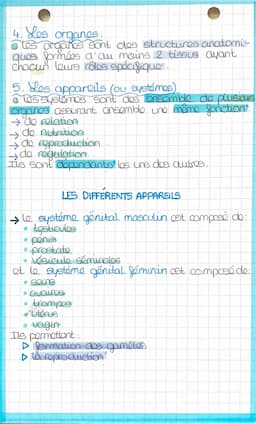 4. Les organes.
les organes sont des structures anatomi-
ques formés d'au moins 2 tissus ayant
chacun leurs rôles spécifique.
5. Les appareils (ou systèmes)
les systèmes sont des ensemble de plusieurs
organes assurant ensemble une même fonction
→ de relation
→ de nutrition
→ de reproduction
→ de régulation
Ils sont dépendants les uns des autres.
LES DIFFÉRENTS APPAREILS
→ le système génital masculin est composé de:
• testicules
• pénis
• prostate
• vésicule séminales
et le système génital féminin est composé de:
• seins
• ovaires
• trompes
• utérus
• vagin
Ils permettent:
▷ formation des gamètes
▷ la reproduction